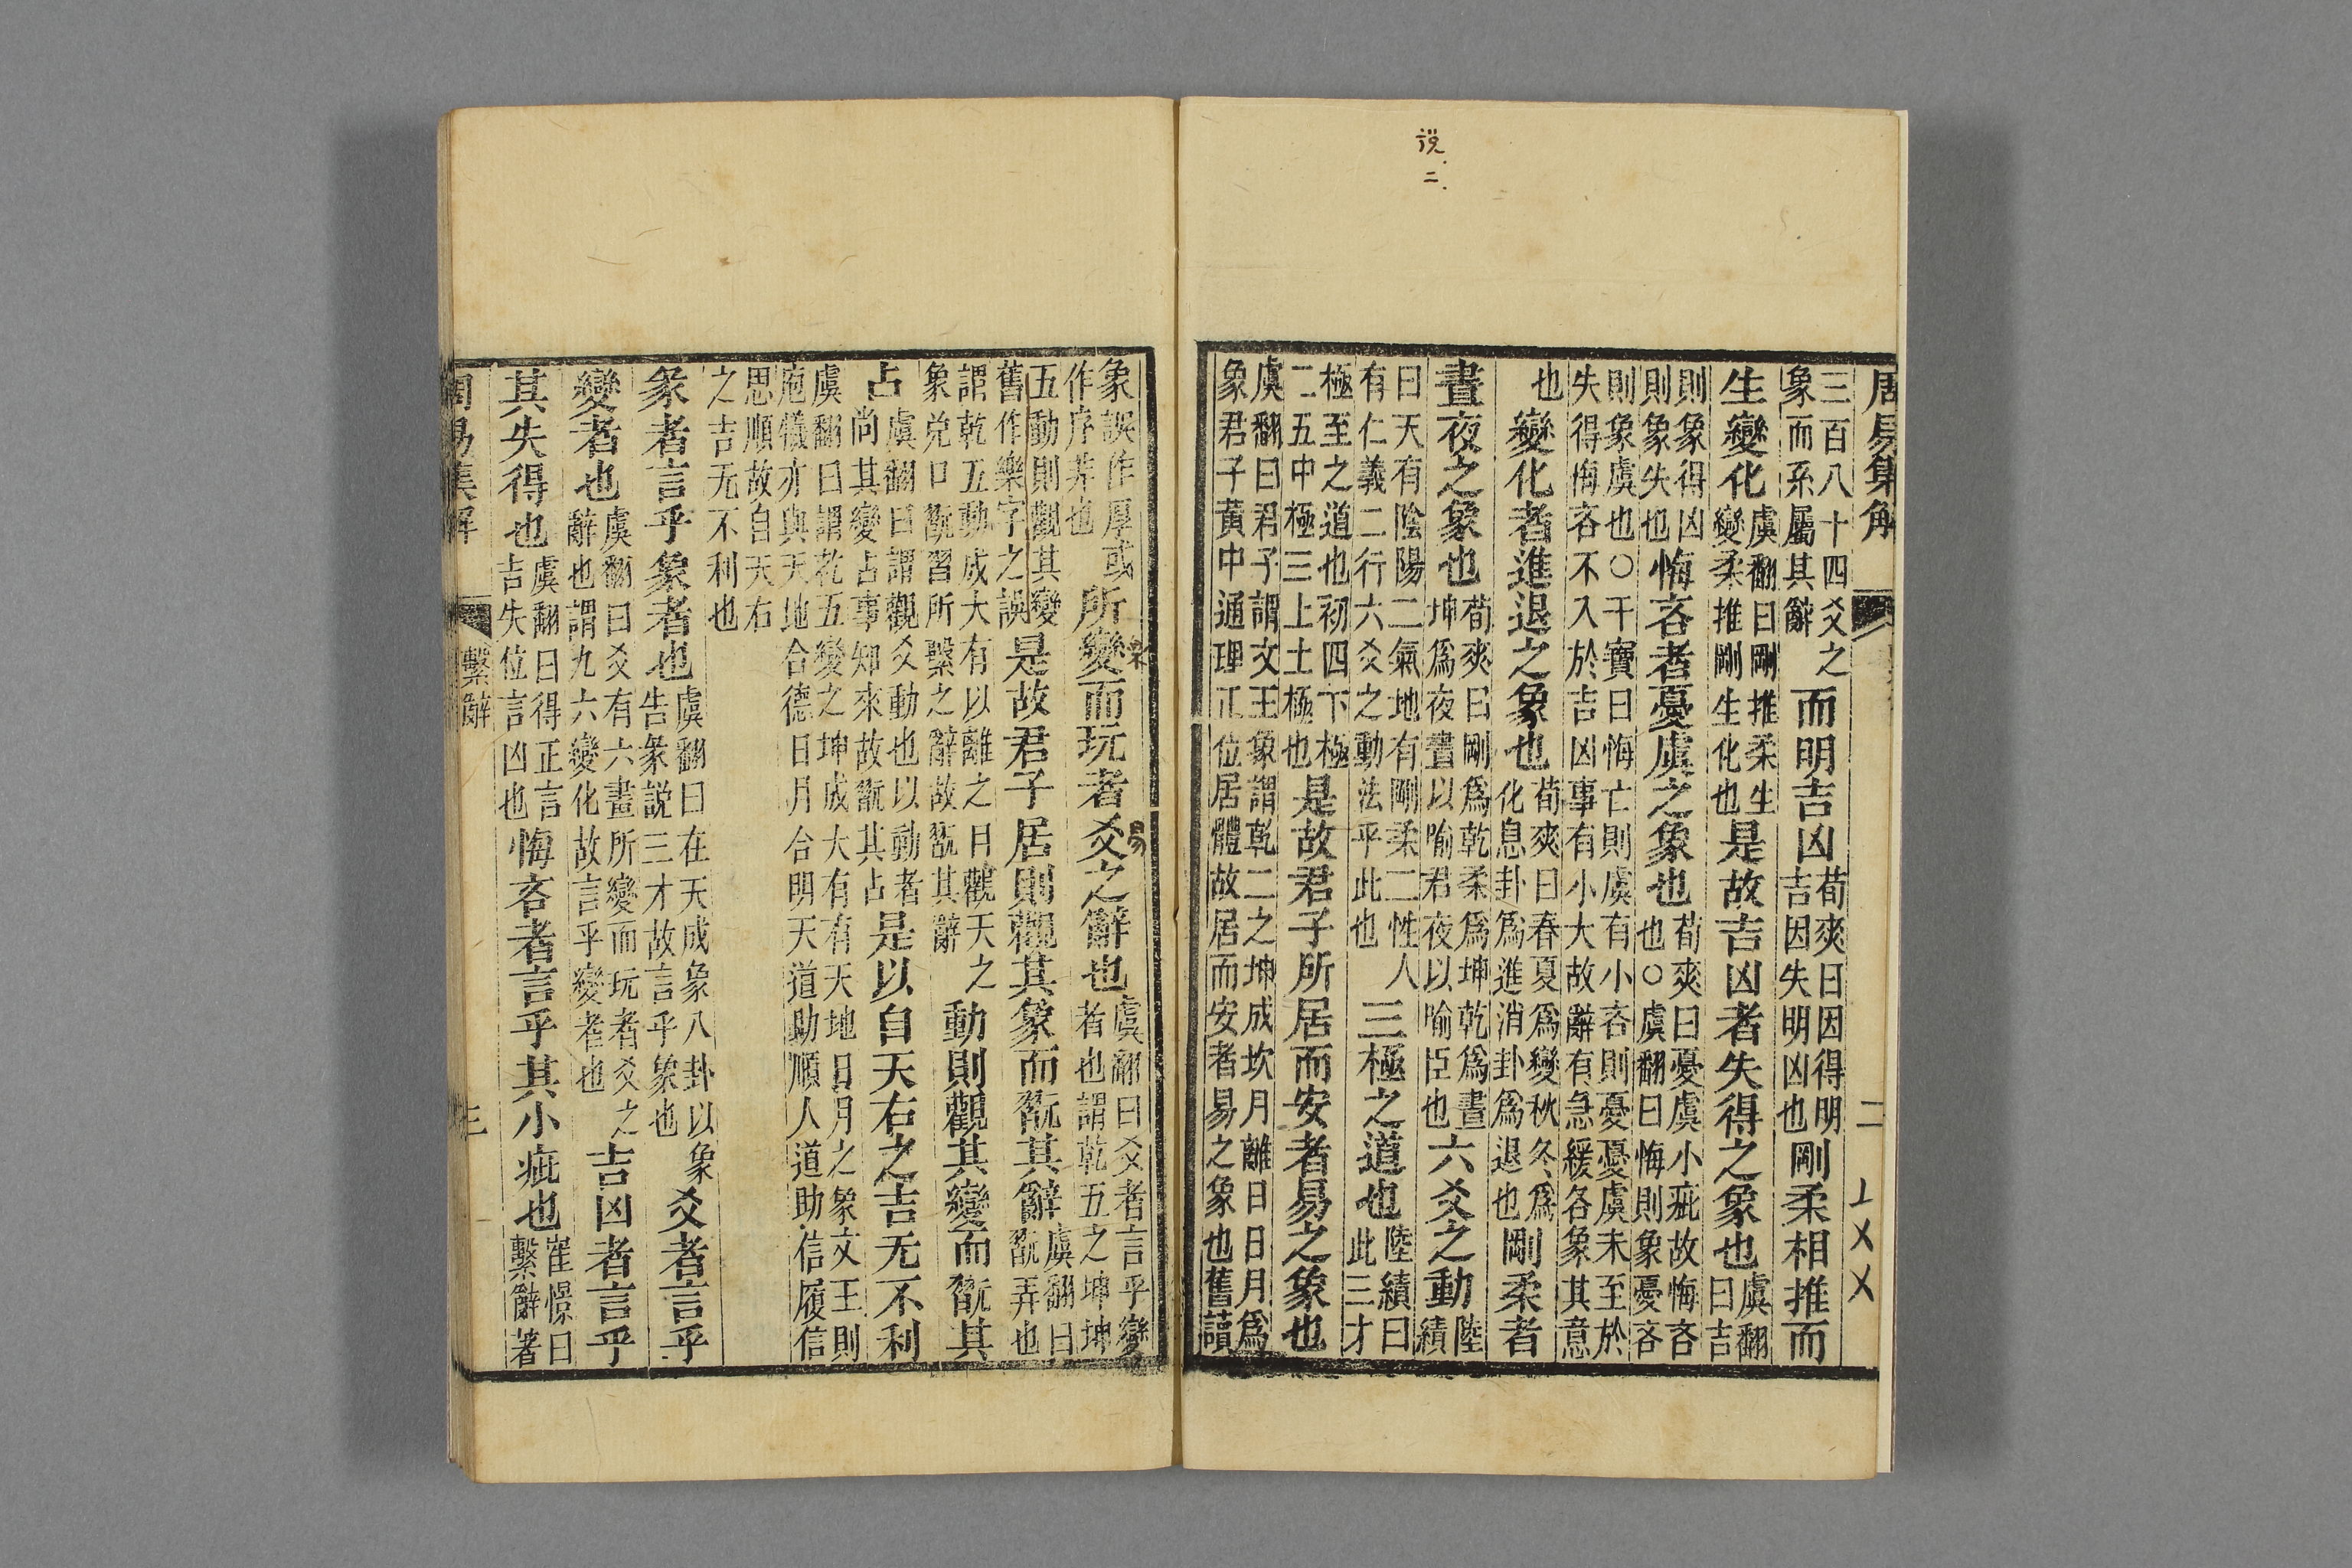 说
二
周易集解
二
三百八十四爻之
象而系屬其辭
而明吉凶
荀爽曰因得明
吉因失明凶也
剛柔相推而
生變化
虞翻曰剛推柔生
變柔推剛生化也
是故吉凶者失得之象也
虞翻
曰吉
則象得凶
則象失也
悔吝者憂虞之象也
荀爽曰憂虞小疵故悔吝
也○虞翻曰悔則象憂吝
則象虞也○干寶曰悔亡則虞有小吝則憂憂虞未至於
失得悔吝不入於吉凶事有小大故辭有急緩各象其意
也
變化者進退之象也
荀爽曰春夏爲變秋冬爲
化息卦爲進消卦爲退也
剛柔者
晝夜之象也
荀爽曰剛爲乾柔爲坤乾爲晝
坤爲夜晝以喻君夜以喻臣也
六爻之動
陸
績
曰天有陰陽二氣地有剛柔二性人
有仁義二行六爻之動法乎此也
三極之道也
陸績曰
此三才
極至之道也初四下極
二五中極三上上極也
是故君子所居而安者易之象也
虞翻曰君子謂文王象謂乾二之坤成坎月離日日月爲
象君子黃中通理正位居體故居而安者易之象也舊讀
象誤作厚或
作序非也
所變而玩者爻之辭也
樂
易
虞翻曰爻者言乎變
者也謂乾五之坤坤
五動則觀其變
舊作樂字之誤
是故君子居則觀其象而翫其辭
虞翻曰
翫弄也
謂乾五動成大有以離之目觀天之
象兌口翫習所繫之辭故翫其辭
動則觀其變而翫其
占
虞翻曰謂觀爻動也以動者
尚其變占事知來故翫其占
是以自天右之吉无不利
虞翻曰謂乾五變之坤成大有有天地日月之象文王則
庖犧亦與天地合德日月合明天道助順人道助信履信
思順故自天右
之吉无不利也
彖者言乎象者也
虞翻曰在天成象八卦以象
告彖說三才故言乎象也
爻者言乎
變者也
虞翻曰爻有六畫所變而玩者爻之
辭也謂九六變化故言乎變者也
吉凶者言乎
其失得也
虞翻曰得正言
吉失位言凶也
悔吝者言乎其小疵也
崔憬曰
繫辭著
周易集解
繫辭
三